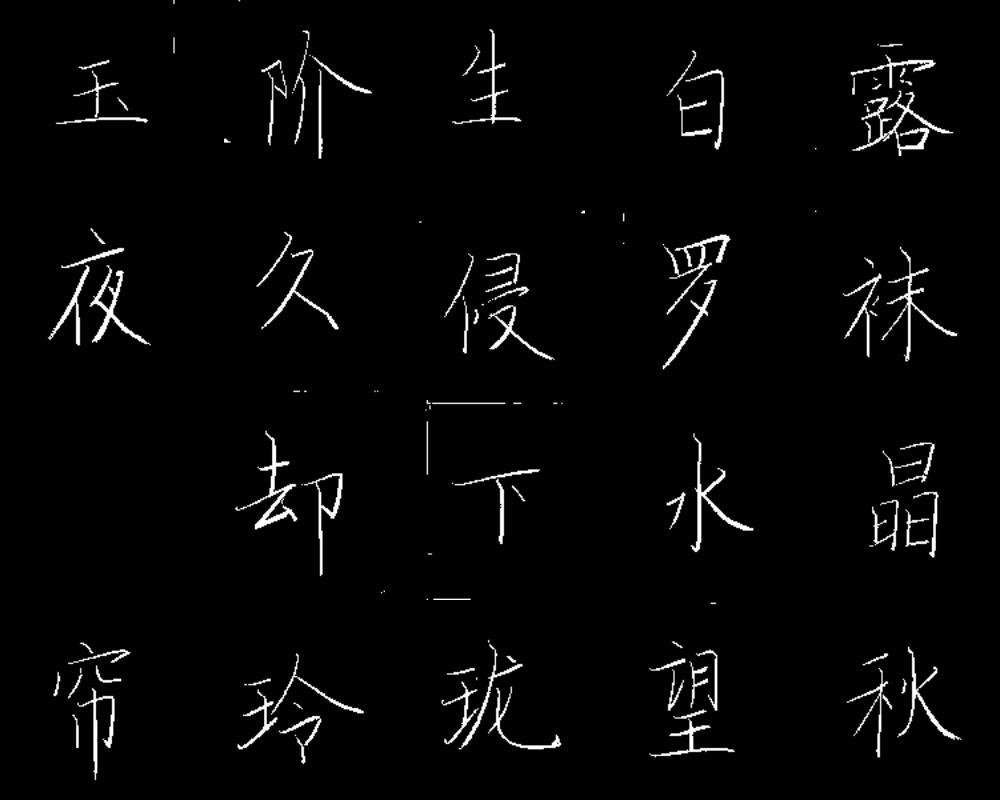 玉阶生白露
夜久侵罗袜
却下水晶
帘玲珑望秋